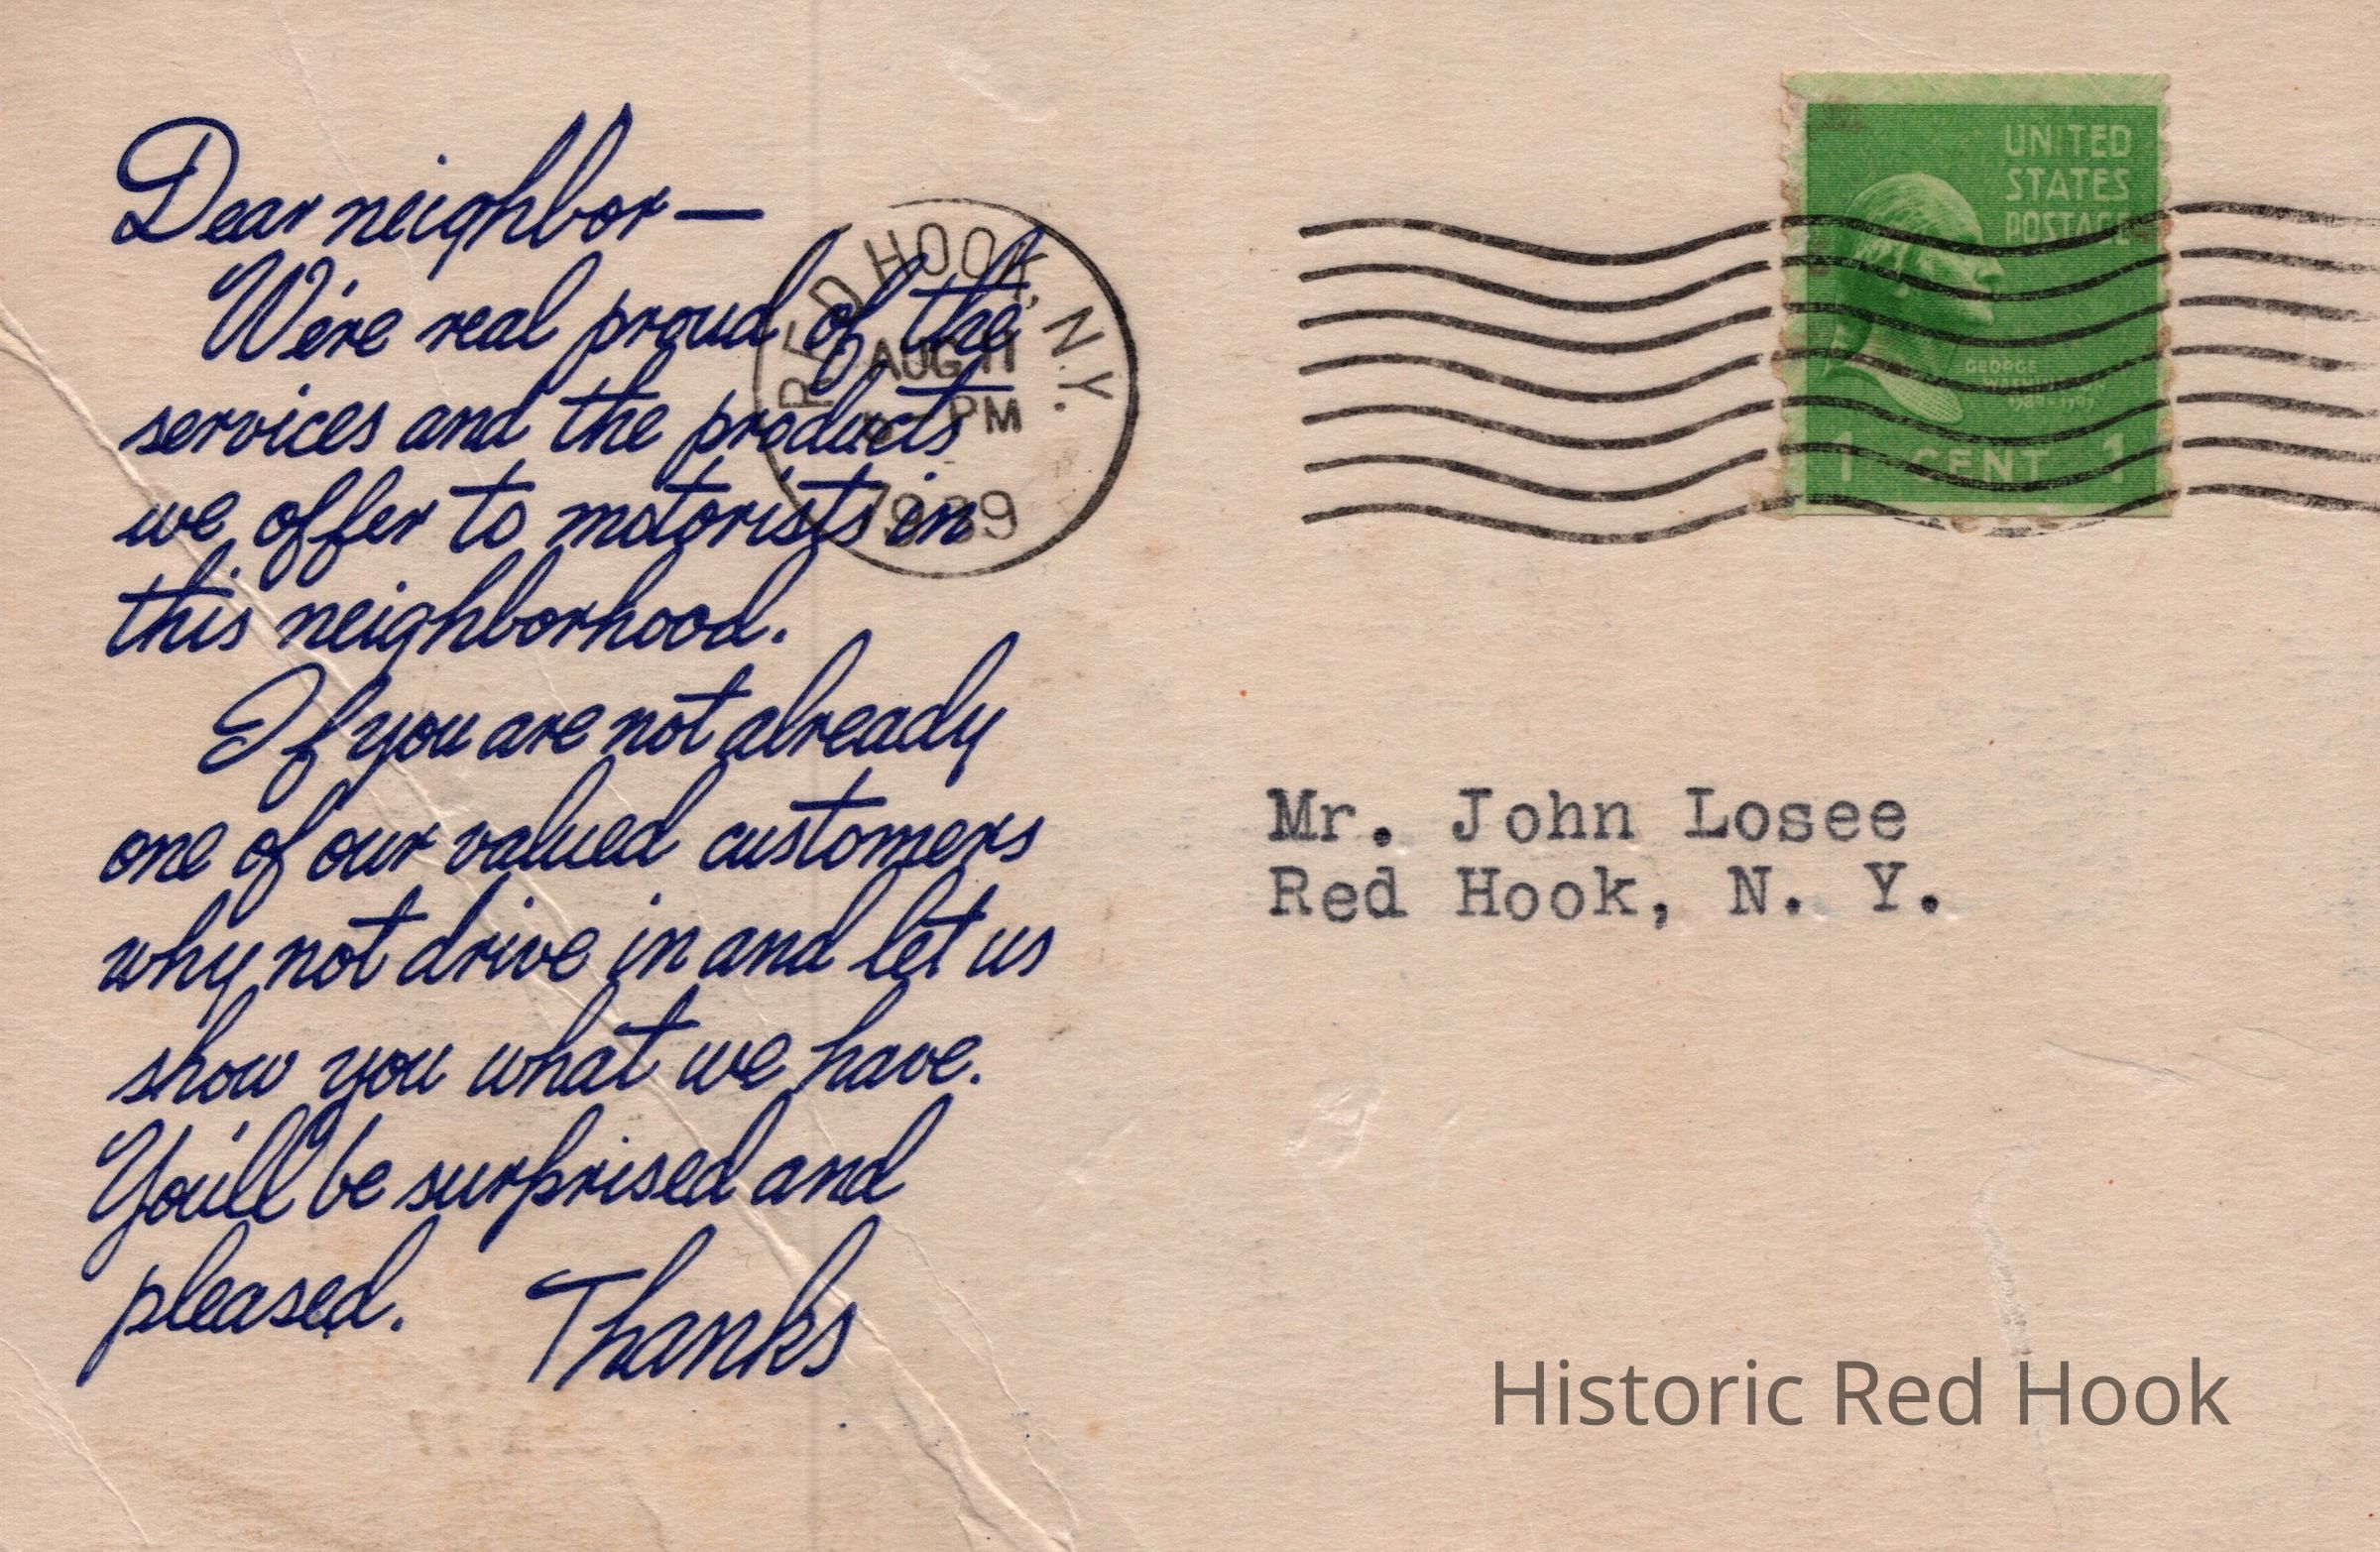 Dear neighbor—
We're real proud of the
services and the products
we offer to motorists in
this neighborhood.
If you are not already
one of our valued customers
why not drive in and let us
show you what we have.
You'll be surprised and
pleased. Thanks
RED HOOK, N.Y.
AUG 11
PM
1939
UNITED
STATES
POSTAGE
GEORGE
WASHINGTON
1 CENT 1
Mr. John Losee
Red Hook, N. Y.
Historic Red Hook